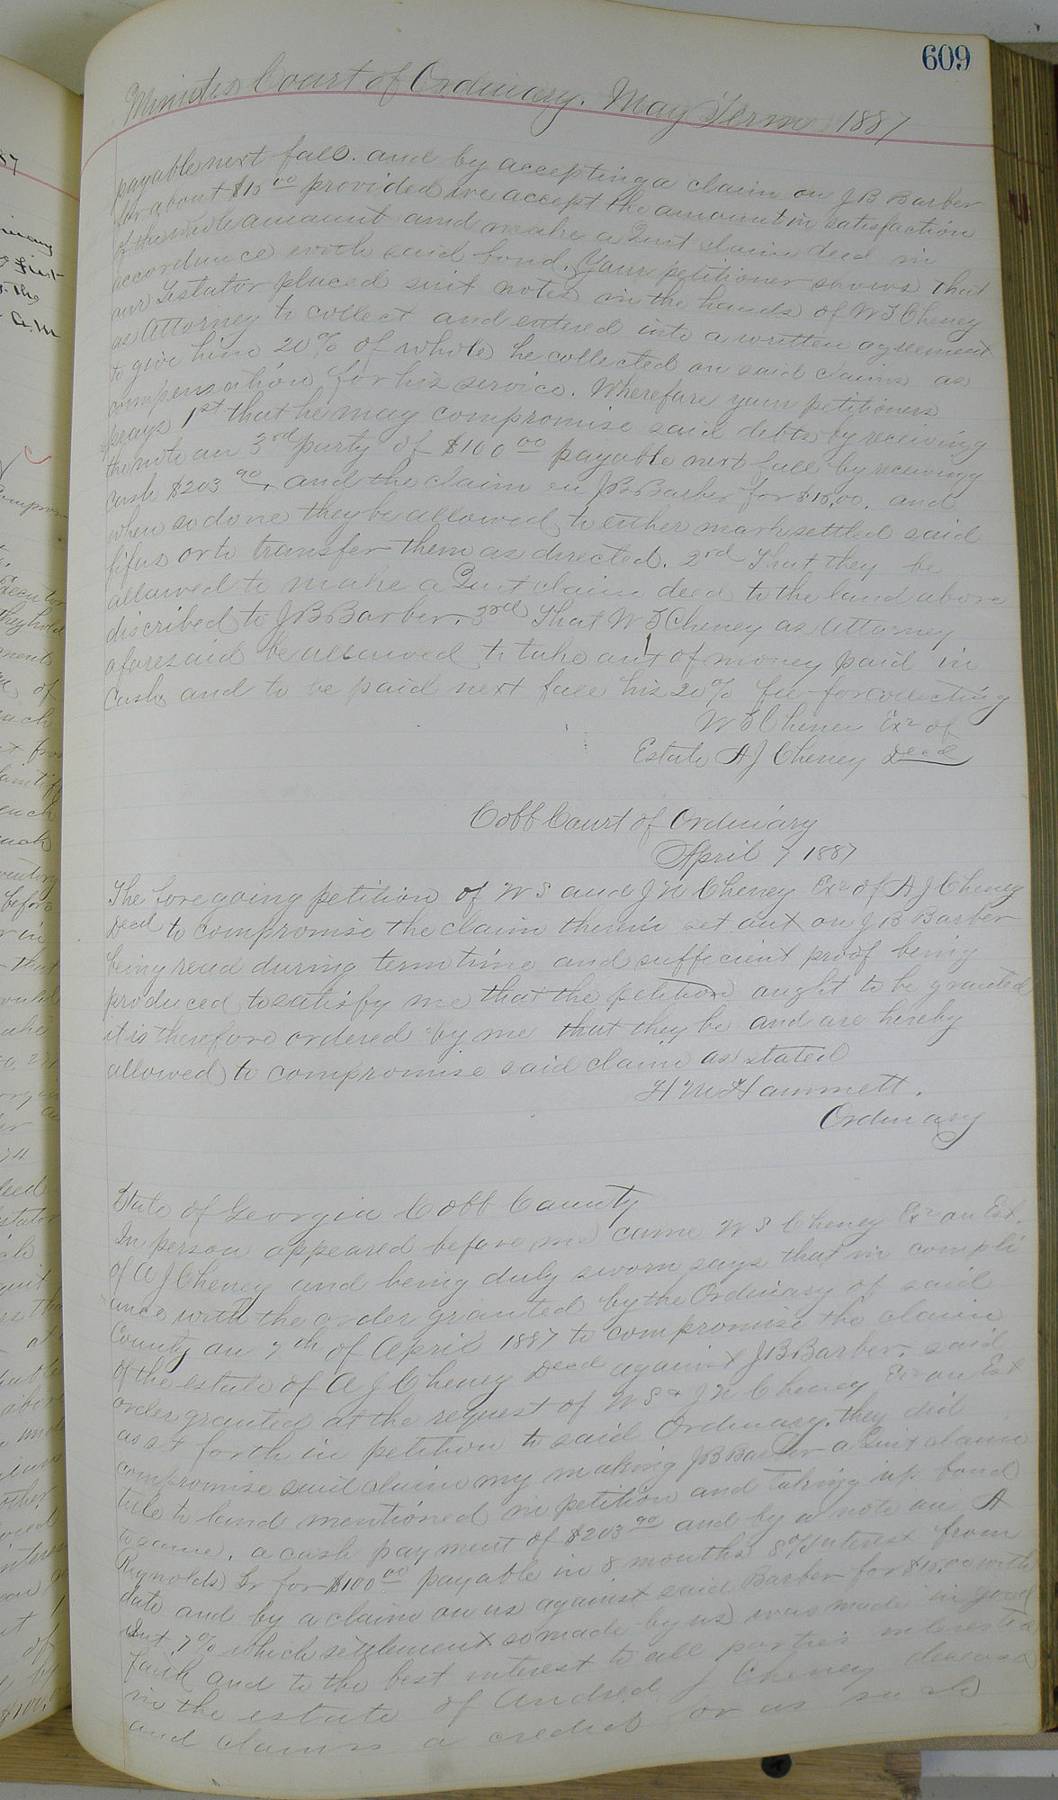 609
Minutes Court of Ordinary. May Term 1887
payable next fall. and by accepting a claim on J B Barber
for about $15 00 provided we accept the amount in satisfaction
of the whole amount and make a Quit claim deed in
accordance with said bond. Your petitioner shows that
our Testator placed suit notes in the hands of W S Cheney
as Attorney to collect and entered into a written agreement
to give him 20% of whole he collected on said claims as
compensation for his service. Wherefore your petitioners
prays 1st that he may compromise said debts by receiving
the note on 3rd party of $100 00 payable next fall by receiving
cash $203 90, and the claim on J B Barber for $15.00. and
when so done they be allowed to either mark settled said
fifas or to transfer them as directed. 2nd That they be
allowed to make a Quit claim deed to the land above
discribed to J B Barber. 3rd That W S Cheney as Attorney
aforesaid be allowed to take out of money paid in
Cash and to be paid next fall his 20% fee for collecting
W S Cheney Exr of
Estate A J Cheney Decd
Cobb Court of Ordinary
April 7 1887
The foregoing petition of W S and J N Cheney Exr of A J Cheney
Decd to compromise the claim therein set out on J B Barber
being read during term time and sufficient proof being
produced to satisfy me that the petition aught to be granted
it is therefore ordered by me that they be and are hereby
allowed to compromise said claim as stated
H M Hammett.
Ordinary
State of Georgia Cobb County
In person appeared before me came W S Cheney Exr on Est.
of A J Cheney and being duly sworn says that in compli
ance with the order granted by the Ordinary of said
County on 7th of April 1887 to compromise the claim
of the estate of A J Cheney Decd against J B Barber. said
order granted at the request of W S & J N Cheney Exr on Est
as set forth in petition to said Ordinary. they did
compromise said claim my making J B Barber a Quit claim
title to land mentioned in petition and taking up bond
to same. a cash payment of $203 90 and by a note on A
Reynolds Sr for $100 00 payable in 8 months 8% interest from
date and by a claim on us against said Barber for $15.00 with
Int 7% which settlement so made by us was made in good
faith and to the best interest to all parties interested
in the estate of Andrew J Cheney deceased
and claims a credit or as such